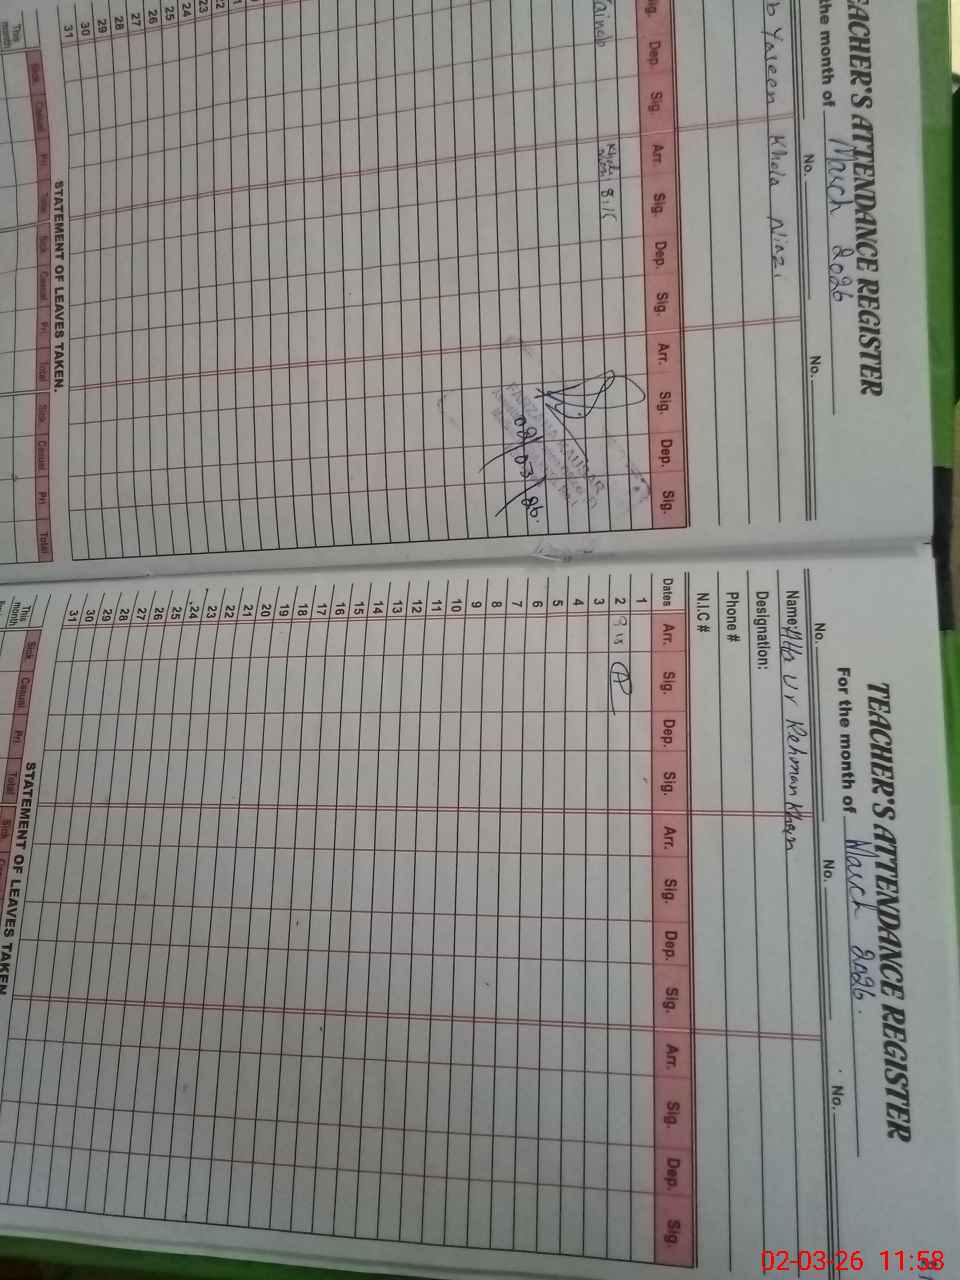 EACHER'S ATTENDANCE REGISTER
the month of March 2026
No. No.
b Yaseen Khola Niazi
Sig. Dep. Sig. Arr. Sig. Dep. Sig. Arr. Sig. Dep. Sig.
Zaineb 8:15
FARZANA KAUSAR
02/03/26.
22
23
24
25
26
27
28
29
30
31
STATEMENT OF LEAVES TAKEN.
This month Sick Casual Pri Total Sick Casual Pri Total Sick Casual Pri Total
TEACHER'S ATTENDANCE REGISTER
For the month of March 2026.
No. No. No.
Name: Atta Ur Rehman Khan
Designation:
Phone #
N.I.C #
Dates Arr. Sig. Dep. Sig. Arr. Sig. Dep. Sig. Arr. Sig. Dep. Sig.
1
2 8 15
3
4
5
6
7
8
9
10
11
12
13
14
15
16
17
18
19
20
21
22
23
24
25
26
27
28
29
30
31
STATEMENT OF LEAVES TAKEN
This month Sick Casual Pri Total Sick
02-03-26 11:58